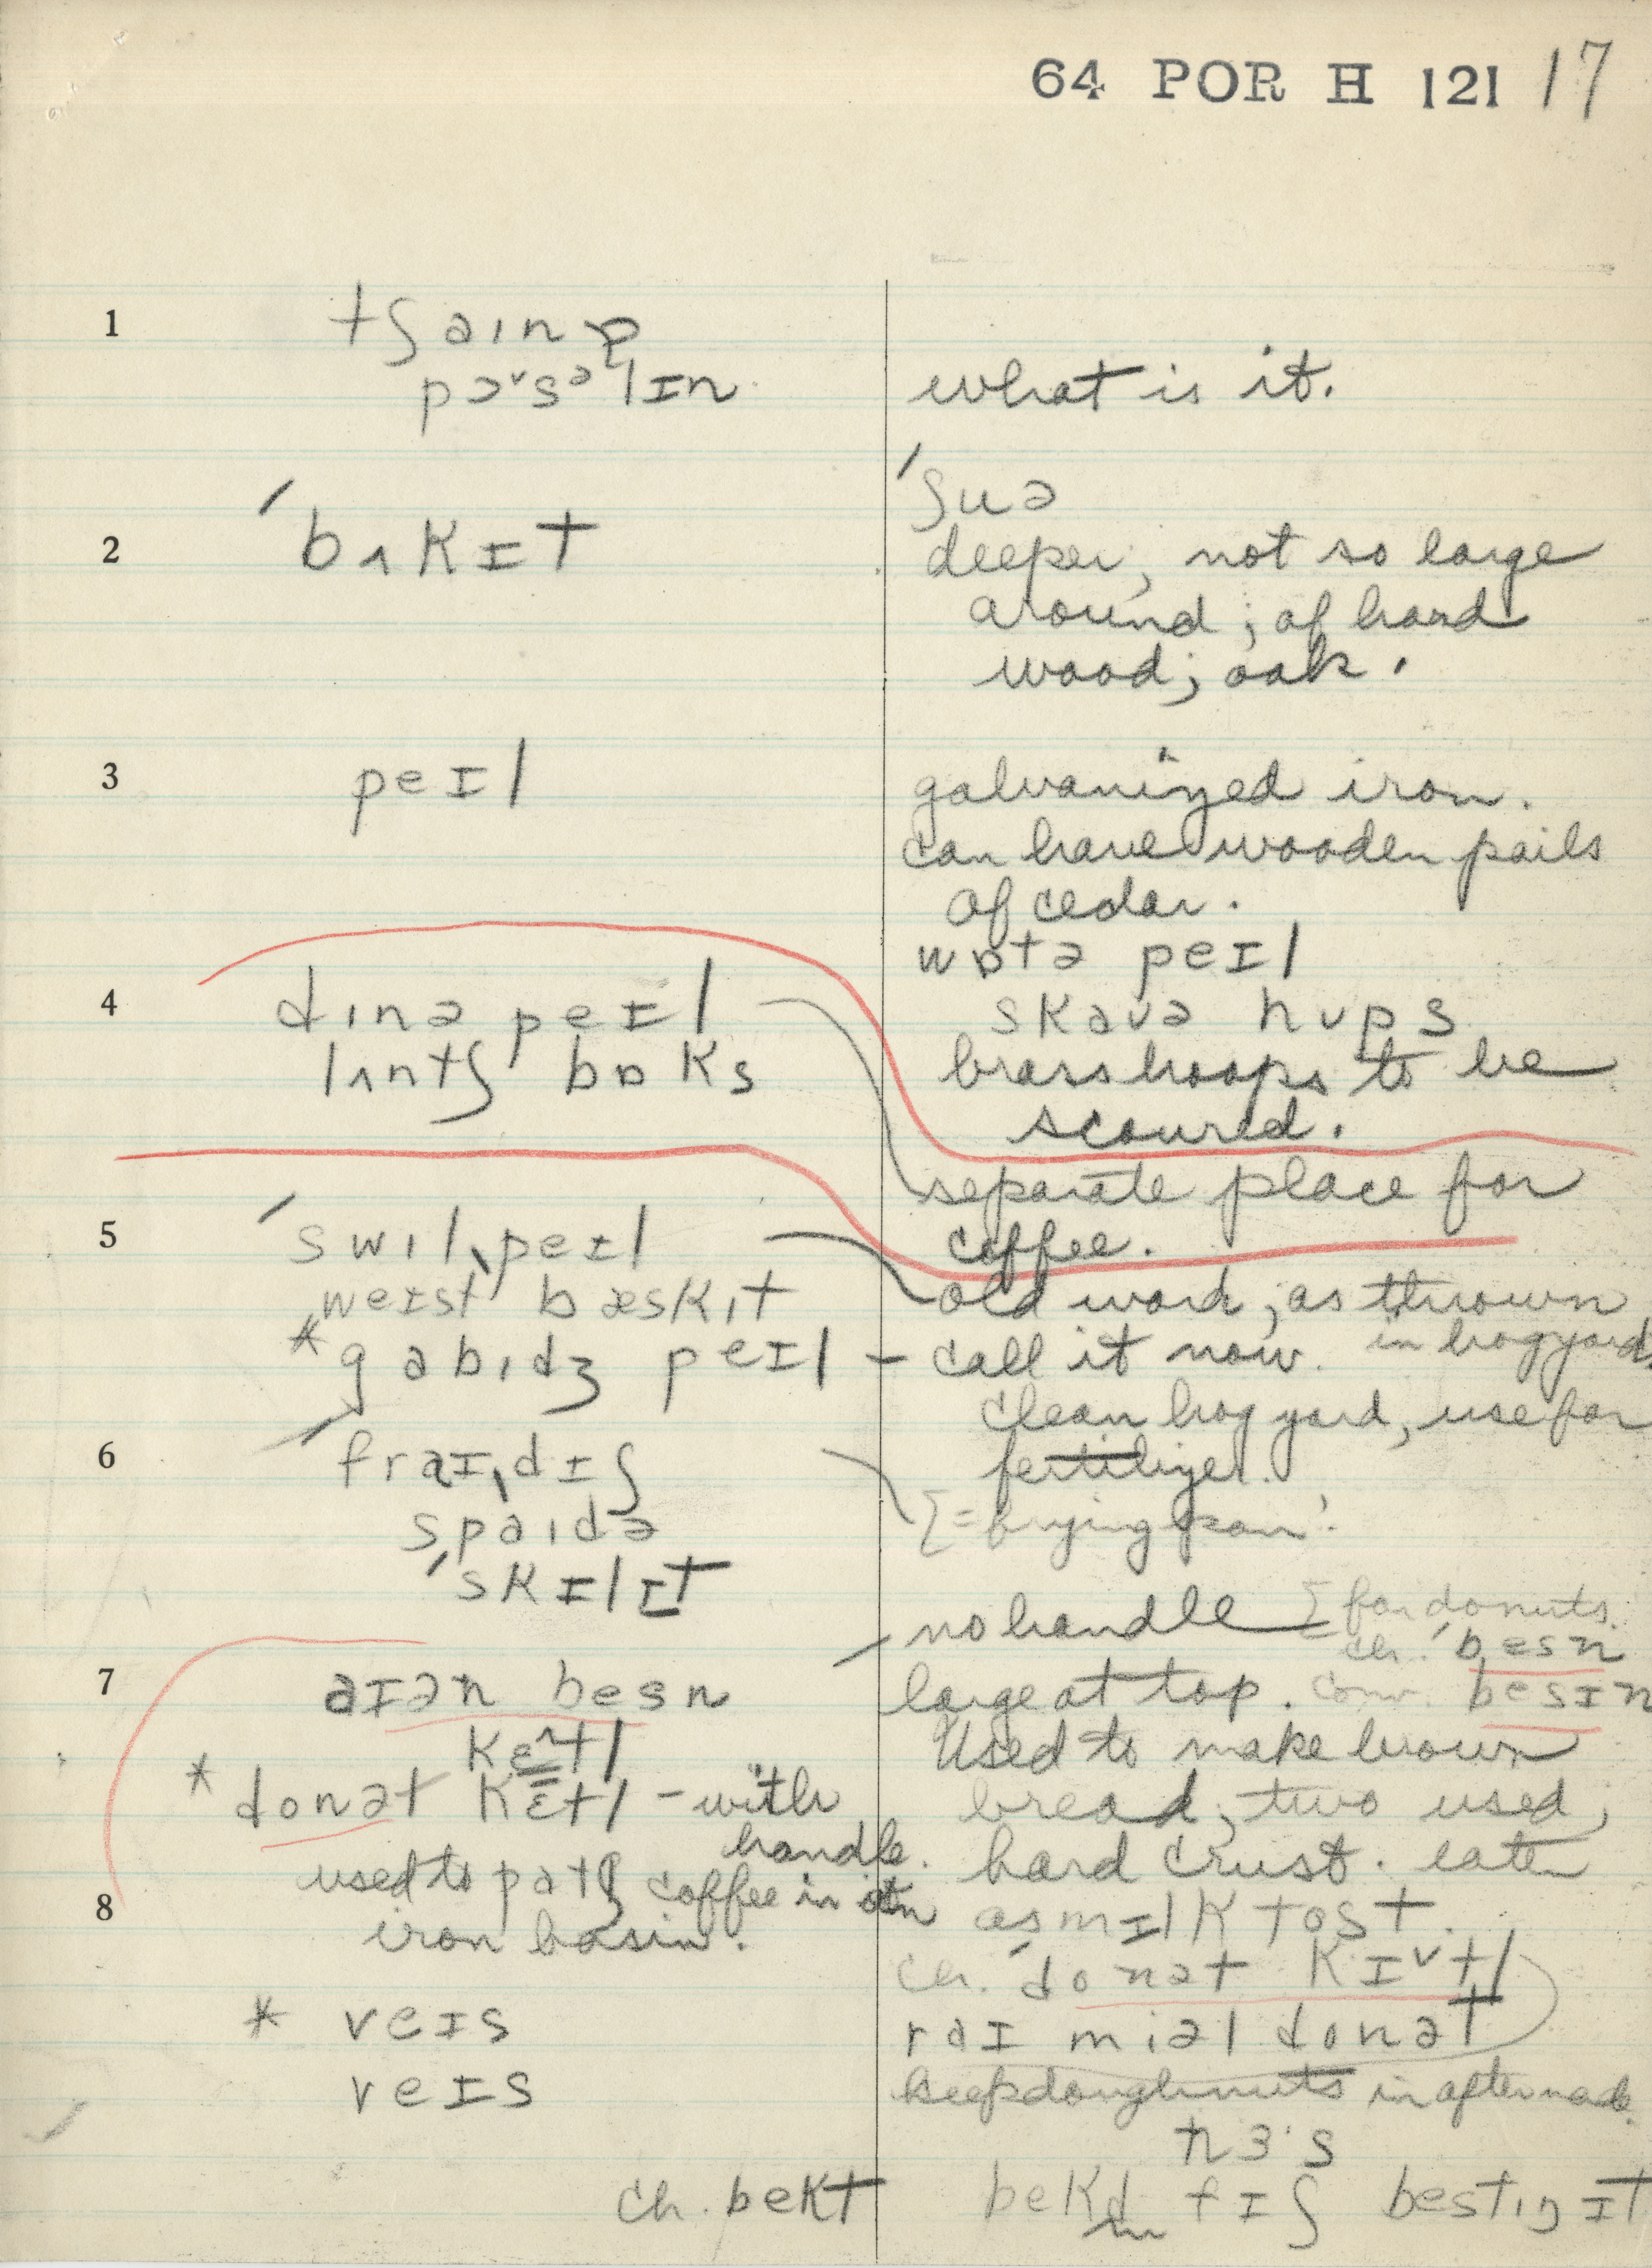 64 POR H 121 17
1 tʃaɪn
pɔˇsᵊlɪn
what is it.
ʃuə
2 ˈbʌkɪt
deeper, not so large
around; of hard
wood; oak.
3 peɪl
galvanized iron.
can have wooden pails
of cedar.
wɒtə peɪl
4 dɪnə peɪl
skaʊə hʊps
lʌntʃ bɒks
brass hoops to be
scoured.
separate place for
coffee.
5 ˈswɪlˌpeɪl
old word, as thrown
in hogyard.
weɪst bæskɪt
* gabɪdʒ peɪl – call it now.
clean hog yard, use for
fertilizer.
6 ˈfraɪˌdɪʃ
= frying pan.
spaɪdə
ˈskɪlɪt
no handle for donuts.
ch. ˈbesn
7 aɪən besn
large at top. conv. besɪn
kɛtl
Used to make brown
* donət kɛtl – with
handle.
bread, two used,
hard crust. eaten
used to patʃ coffee in
iron basin.
8
as mɪlk tost.
ch. ˈdonət kɪˇtl
* veɪs
raɪ miəl donət
veɪs
keep doughnuts in after made
nɜˑs
ch. bekt
bekd fɪʃ best ɪŋ ɪt